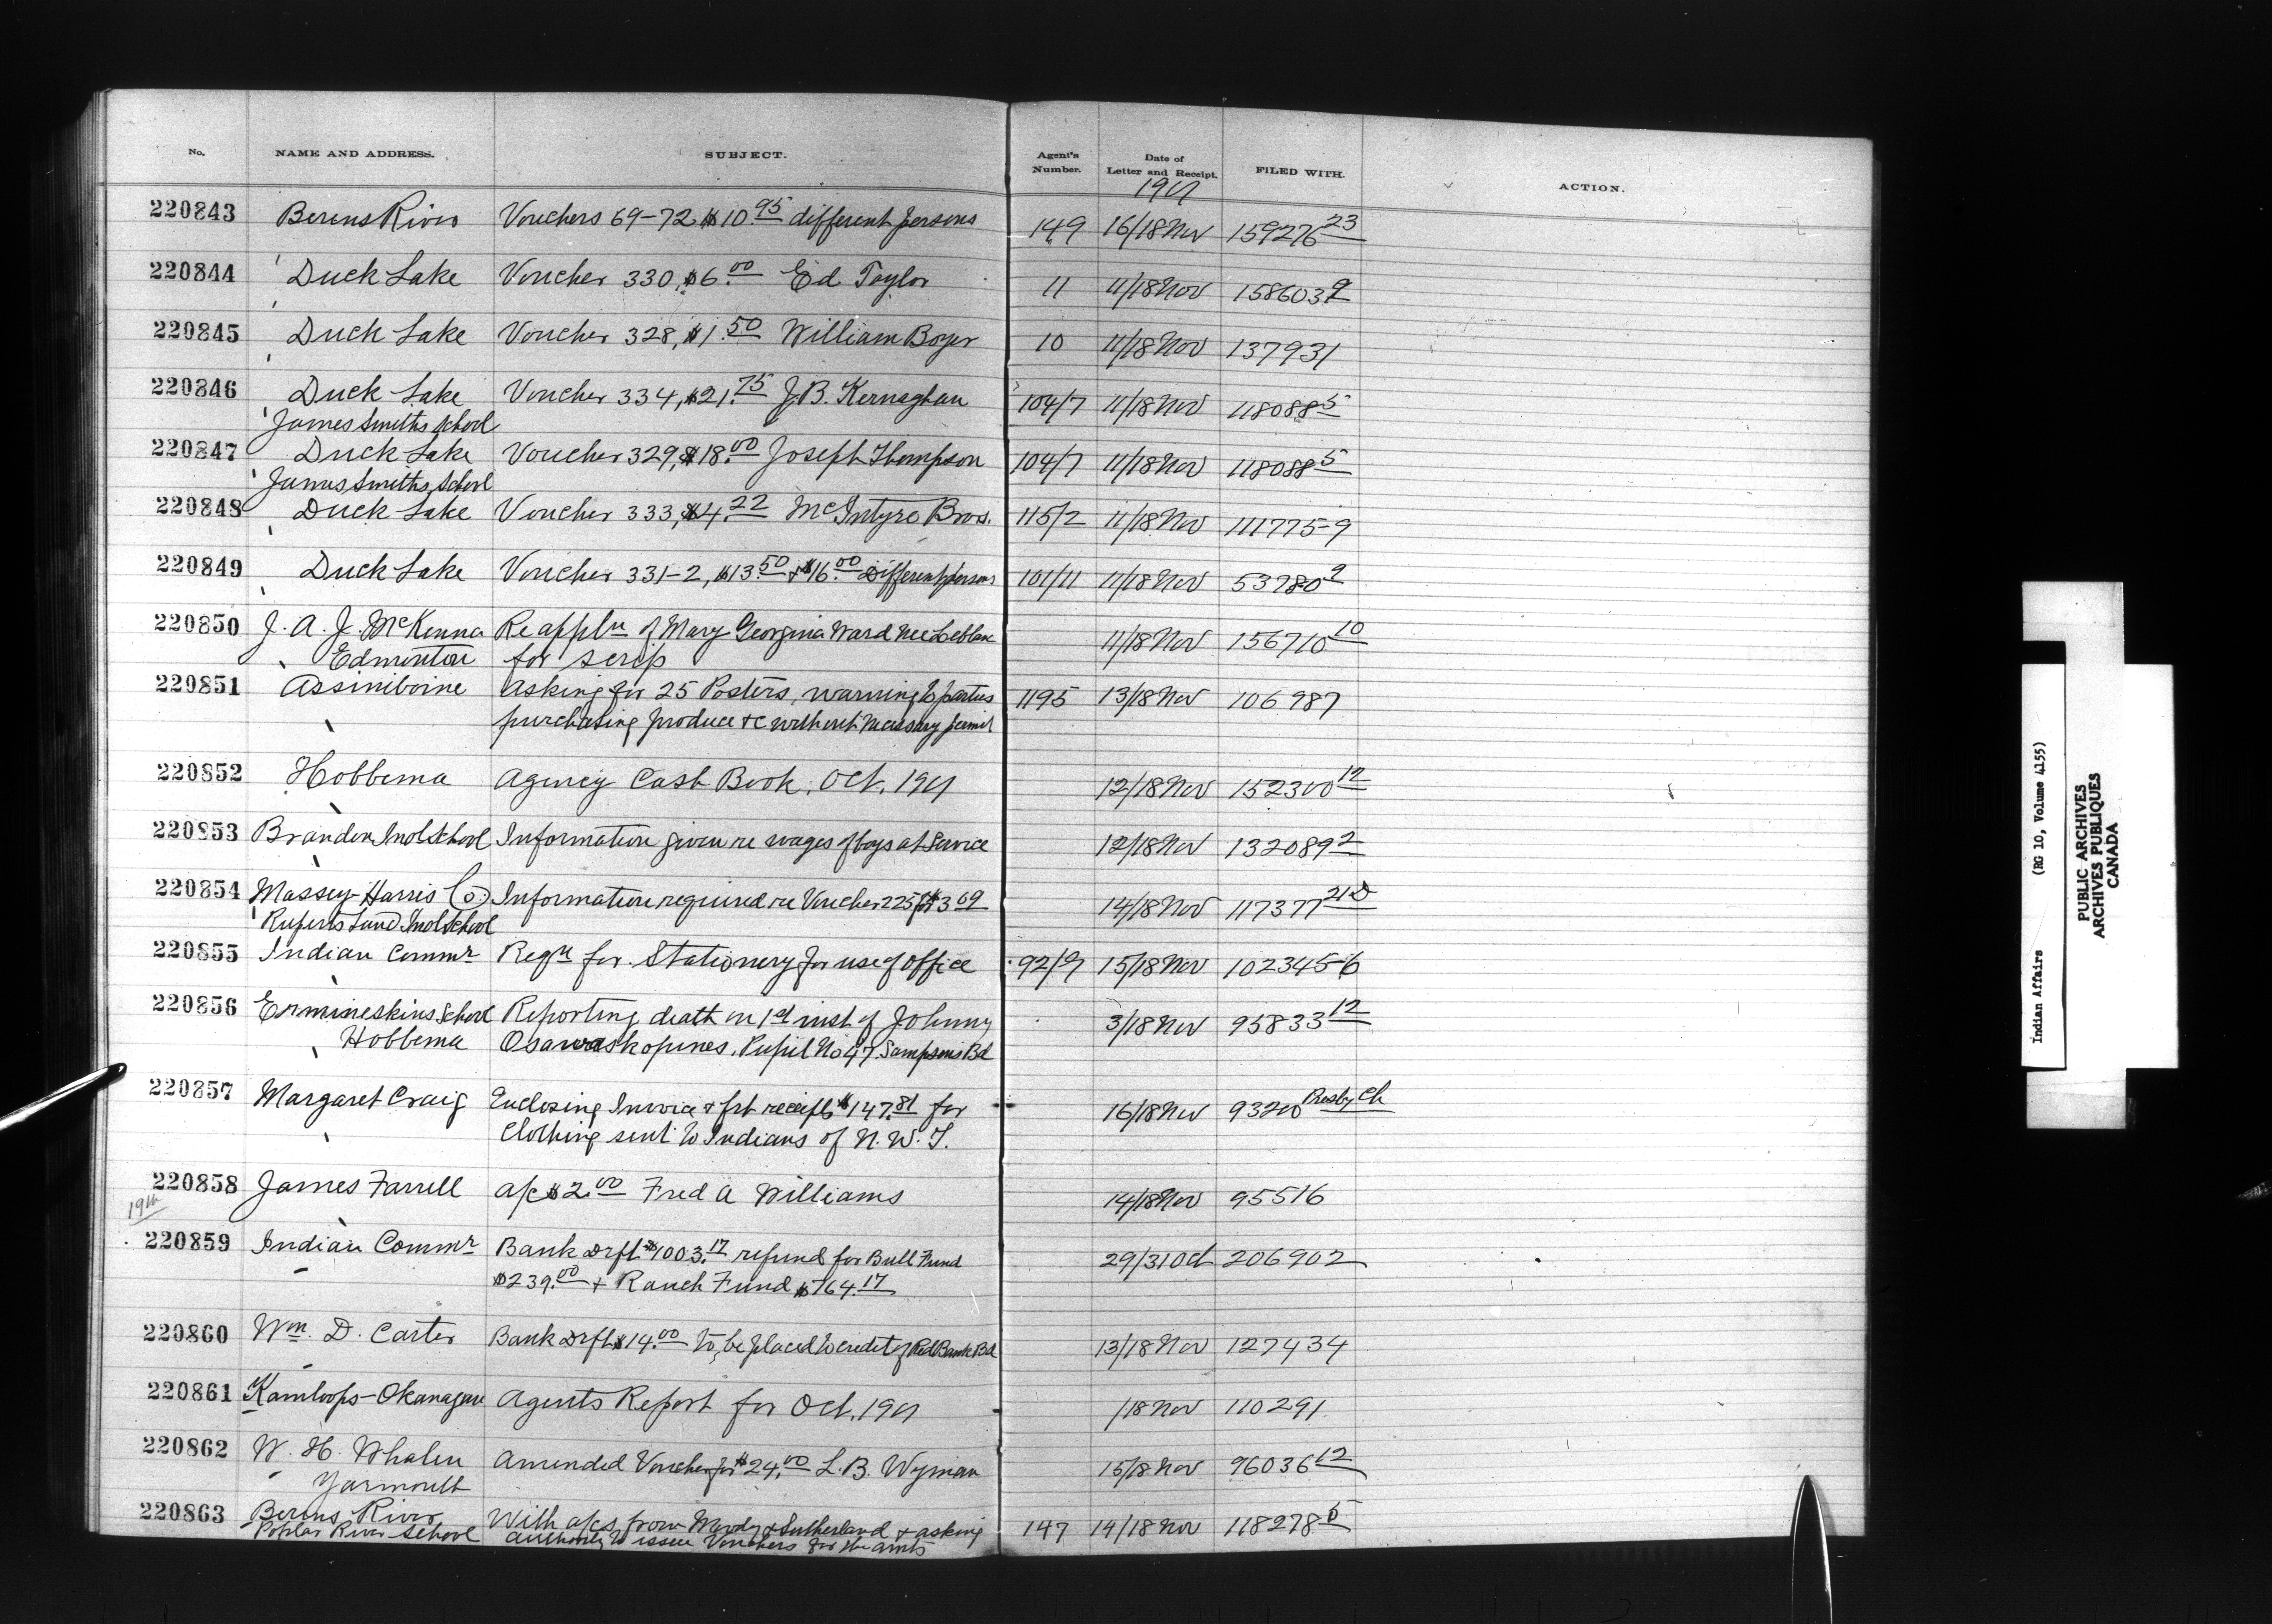 No. NAME AND ADDRESS. SUBJECT. Agent's Number. Date of Letter and Receipt. FILED WITH. ACTION.
1901
220843 Berens River Vouchers 69-72 $10.95 different persons 149 16/18 Nov 159276 23
220844 Duck Lake Voucher 330, $6.00 Ed Taylor 11 11/18 Nov 158603 9
220845 Duck Lake Voucher 328, $1.50 William Boyer 10 11/18 Nov 137931
220846 Duck Lake Voucher 334, $21.75 J.B. Kernaghan 104/7 11/18 Nov 118088 5
James Smiths School
220847 Duck Lake Voucher 329, $18.00 Joseph Thompson 104/7 11/18 Nov 118088 5
James Smiths School
220848 Duck Lake Voucher 333, $4.22 McIntyre Bros. 115/2 11/18 Nov 111775-9
220849 Duck Lake Voucher 331-2, $13.50 + $16.00 Different persons 101/11 11/18 Nov 53780 2
220850 J. A. J. McKenna Re appln of Mary Georgina Ward nee Leblanc 11/18 Nov 156710 10
Edmonton for scrip
220851 Assiniboine Asking for 25 Posters, warning to parties 1195 13/18 Nov 106987
purchasing produce &c without necessary permit
220852 Hobbema Agency Cash Book, Oct. 1901 12/18 Nov 152300 12
220853 Brandon Indl School Information given re wages of boys at Service 12/18 Nov 132089 2
220854 Massey-Harris Co. Information required re Voucher 225 for $3 09 14/18 Nov 117377 21D
Ruperts Land Indl School
220855 Indian Commr Reqn for Stationery for use of office 92/9 15/18 Nov 102345-6
220856 Ermineskins School Reporting death on 1st inst of Johnny 3/18 Nov 95833 12
Hobbema Osawaskopines. Pupil No 47. Sampsons Bd
220857 Margaret Craig Enclosing Invoice & frt receipts $147.81 for 16/18 Nov 93200 Presby Ch
Clothing sent to Indians of N.W.T.
220858 James Farrell a/c $2.00 Fred A Williams 14/18 Nov 95516
19th
220859 Indian Commr Bank Drft $1003.17 refund for Bull Fund 29/31 Oct 206902
$239.00 + Ranch Fund $764.17
220860 Wm. D. Carter Bank Drft $14.00 to be placed to credit of Red Bank Bd 13/18 Nov 127434
220861 Kamloops-Okanagan Agents Report for Oct. 1901 /18 Nov 110291
220862 W. H. Whalen Amended Voucher for $24.00 L.B. Wyman 15/18 Nov 96036 12
Yarmouth
220863 Berens River With a/cs from Moody & Sutherland & asking 147 14/18 Nov 118278 5
Poplar River School authority to issue Vouchers for the amts
Indian Affairs (RG 10, Volume 4155)
PUBLIC ARCHIVES
ARCHIVES PUBLIQUES
CANADA